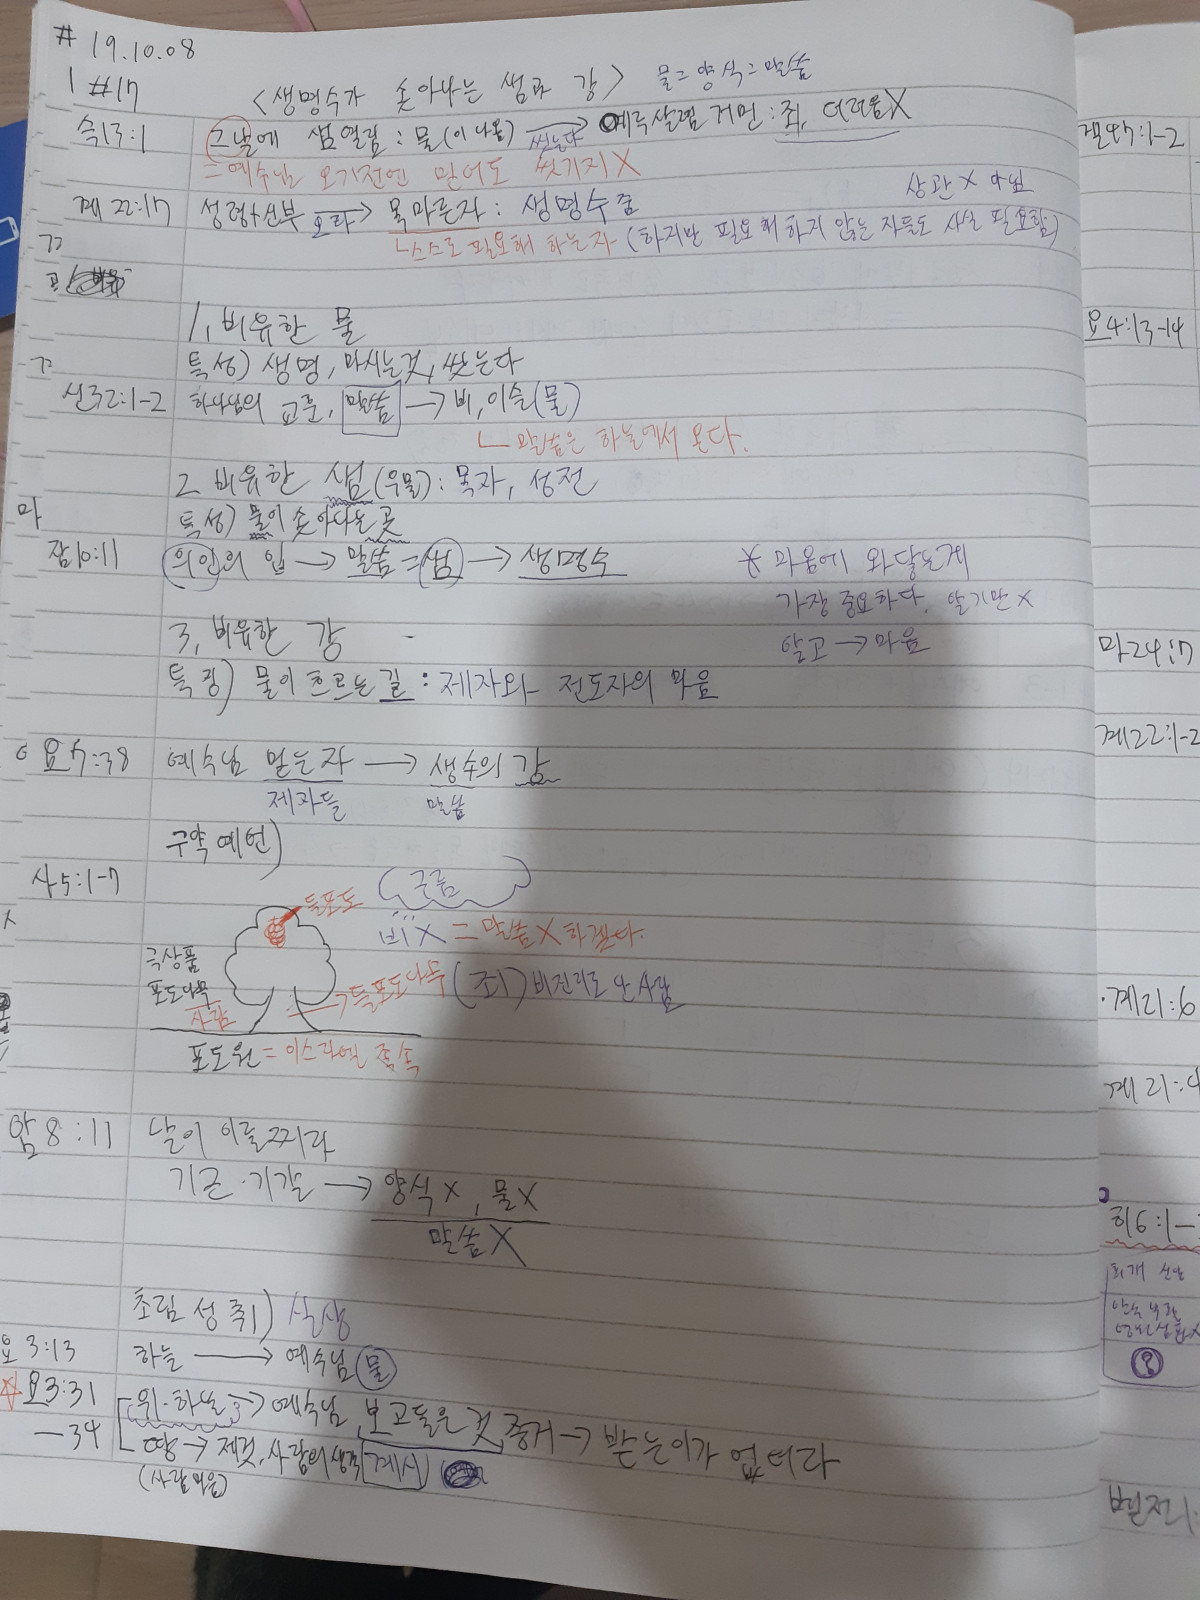 # 19.10.08
1 #17
<생명수가 솟아나는 샘과 강> 물=양식=말씀
슥13:1 그날에 샘 열림 : 물(이 나옴) 씻는다→ 예루살렘 거민 : 죄, 더러움X
=예수님 오기전엔 믿어도 씻기지X
상관X 아님
계 22:17 성령+신부 오라→ 목마른자 : 생명수 줌
ㄴ스스로 필요해 하는자 (하지만 필요해 하지 않는 자들도 사실 필요함)
1. 비유한 물
특성) 생명, 마시는것, 씻는다
신32:1-2 하나님의 교훈, 말씀 → 비, 이슬(물)
ㄴ 말씀은 하늘에서 온다.
2. 비유한 샘(우물) : 목자, 성전
특성) 물이 솟아나는 곳
잠10:11 의인의 입 → 말씀 = 샘 → 생명수
* 마음에 와닿는게
가장 중요하다. 알기만 X
알고 → 마음
3. 비유한 강
특징) 물이 흐르는 길 : 제자와 전도자의 마음
요7:38 예수님 믿는 자 → 생수의 강
제자들 말씀
구약 예언)
사5:1-7
구름
들포도
비X = 말씀X 하겠다.
극상품
포도나무
사람
→들포도나무 (죄) 비진리로 난 사람
포도원 = 이스라엘 족속
암 8:11 날이 이를찌라
기근·기갈 → 양식X, 물X
말씀X
초림 성취) 실상
요 3:13 하늘 → 예수님 물
☆요3:31 위·하늘 → 예수님, 보고들은 것, 증거 → 받는이가 없더라
-34 땅 → 제것, 사람의 생각 계시
(사람 마음)
겔47:1-2
요4:13-14
마24:7
계22:1-2
계21:6
계21:4
히6:1-
회개 신앙
?
벧전1: